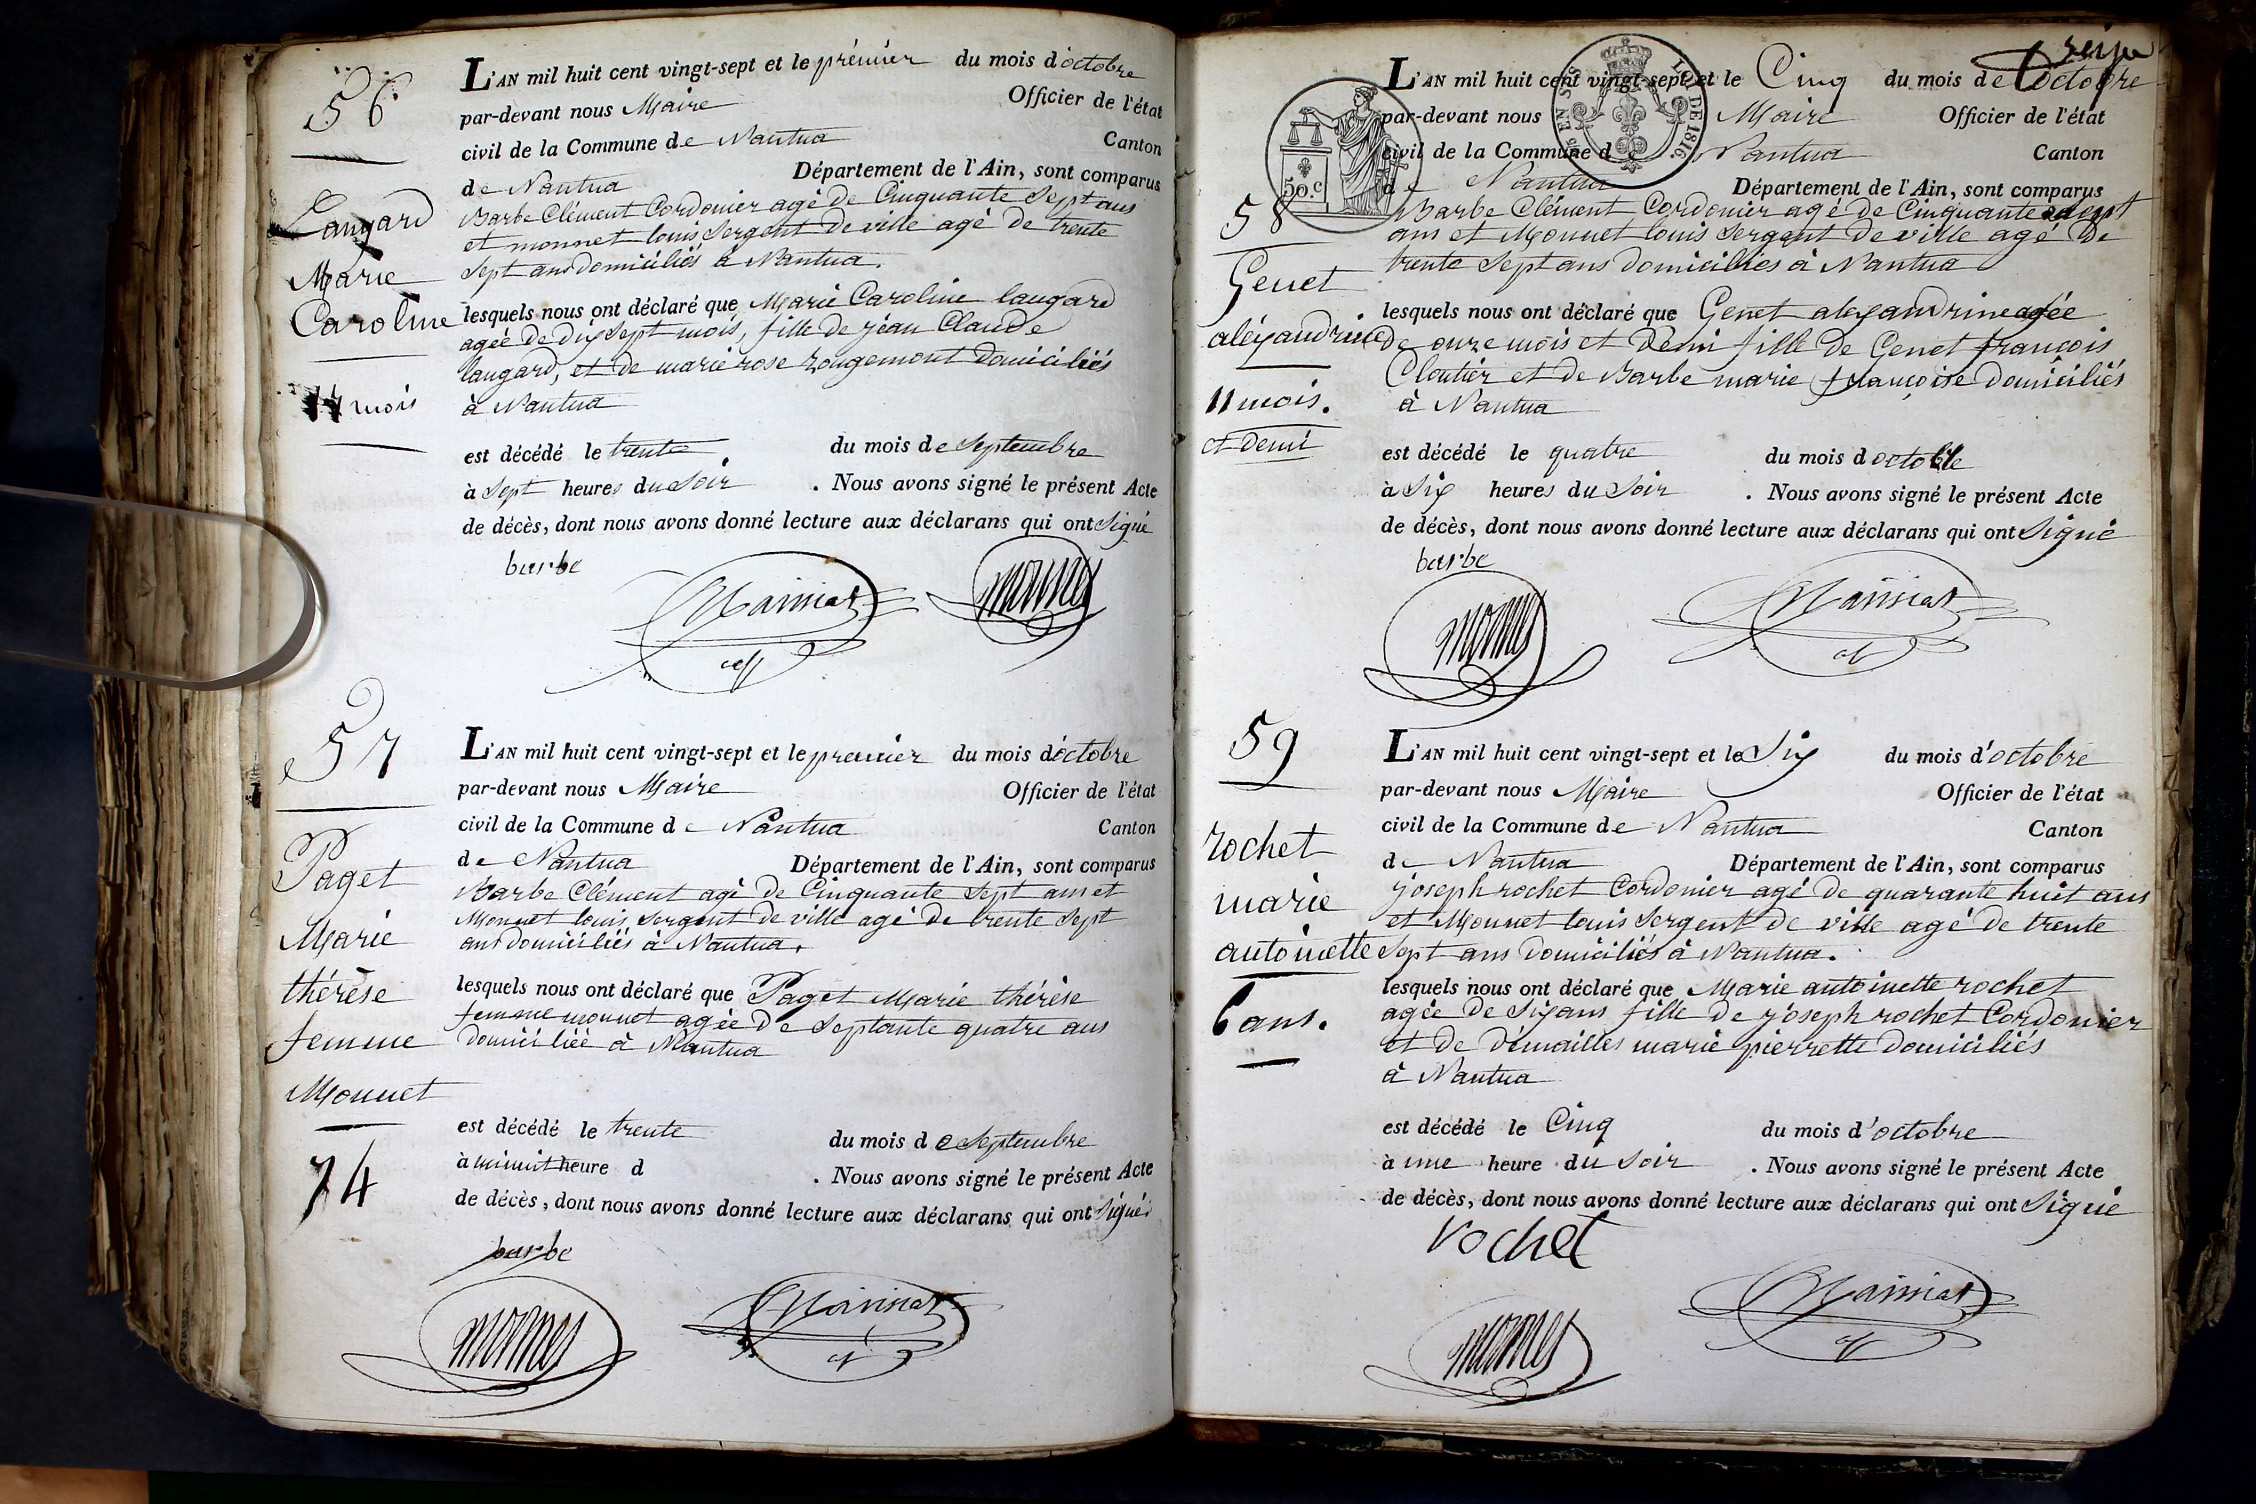 56
Laugard
Marie
Caroline
17 mois
L'AN mil huit cent vingt-sept et le prémier du mois d'octobre
par-devant nous Maire Officier de l'état
civil de la Commune de Nantua Canton
de Nantua Département de l'Ain, sont comparus
Barbe Clément Cordonier agé de Cinquante Sept ans
et monnet louis Sergent de ville agé de trente
Sept ans domiciliés à Nantua.
lesquels nous ont déclaré que Marie Caroline laugard
agée de dix Sept mois, fille de jéan Claude
laugard, et de marie rose rougemont domiciliés
à Nantua
est décédé le trente du mois de Septembre
à Sept heures du Soir . Nous avons signé le présent Acte
de décès, dont nous avons donné lecture aux déclarans qui ont Signé
barbe
monnet
57
Paget
Marie
thérèse
femme
Monnet
74
L'AN mil huit cent vingt-sept et le premier du mois d'octobre
par-devant nous Maire Officier de l'état
civil de la Commune de Nantua Canton
de Nantua Département de l'Ain, sont comparus
Barbe Clément agé de Cinquante Sept ans et
Monnet louis Sergent de ville agé de trente Sept
ans domiciliés à Nantua.
lesquels nous ont déclaré que Paget Marie thérèse
femme monnet agée de Septante quatre ans
domiciliée à Nantua
est décédé le trente du mois de Septembre
à minuit heure d . Nous avons signé le présent Acte
de décès, dont nous avons donné lecture aux déclarans qui ont Signé
barbe
monnet
50.C
LOI DE 1816.
58
Genet
aléxandrine
11 mois.
et demi
L'AN mil huit cent vingt-sept et le Cinq du mois de octobre
par-devant nous Maire Officier de l'état
civil de la Commune de Nantua Canton
de Nantua Département de l'Ain, sont comparus
Barbe Clément Cordonier agé de Cinquante Sept
ans et Monnet louis Sergent de ville agé de
trente Sept ans domiciliés à Nantua
lesquels nous ont déclaré que Genet alexandrine agée
de onze mois et demi fille de Genet françois
Cloutier et de Barbe marie françoise domiciliés
à Nantua
est décédé le quatre du mois d octobre
à Six heures du Soir . Nous avons signé le présent Acte
de décès, dont nous avons donné lecture aux déclarans qui ont Signé
barbe
monnet
59
rochet
marie
antoinette
6 ans.
L'AN mil huit cent vingt-sept et le Six du mois d'octobre
par-devant nous Maire Officier de l'état
civil de la Commune de Nantua Canton
de Nantua Département de l'Ain, sont comparus
joseph rochet Cordonier agé de quarante huit ans
et Monnet louis Sergent de ville agé de trente
Sept ans domiciliés à Nantua.
lesquels nous ont déclaré que Marie antoinette rochet
agée de Six ans fille de joseph rochet Cordonier
et de démailles marie pierrette domiciliés
à Nantua
est décédé le Cinq du mois d'octobre
à une heure du Soir . Nous avons signé le présent Acte
de décès, dont nous avons donné lecture aux déclarans qui ont Signé
rochet
monnet